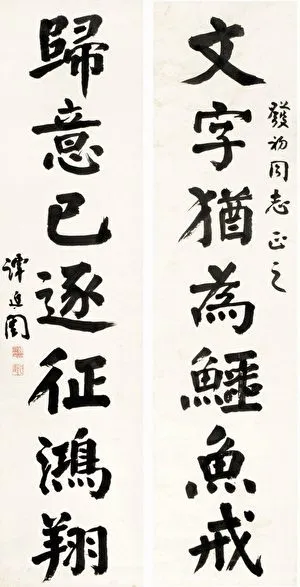 發初同志正之
文字猶為鱷魚戒
歸意已逐征鴻翔
譚延闓